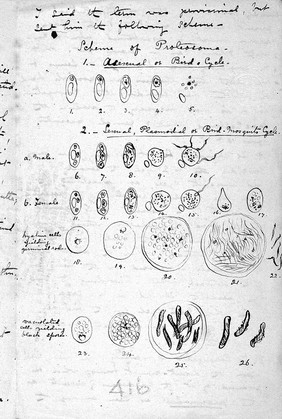 I said the term was provisional, but
sent him the following Scheme—
Scheme of Proteosoma.
1.— Asexual or Bird Cycle.
1. 2. 3. 4. 5.
2.— Sexual, Plasmodial or Bird-Mosquito Cycle.
a. Male.
6. 7. 8. 9. 10.
b. Female
11. 12. 13. 14. 15. 16. 17.
Hyaline cells
yielding
germinal rods.
18. 19. 20. 21. 22.
Vacuolated
cells yielding
black spores.
23. 24. 25. 26.
416